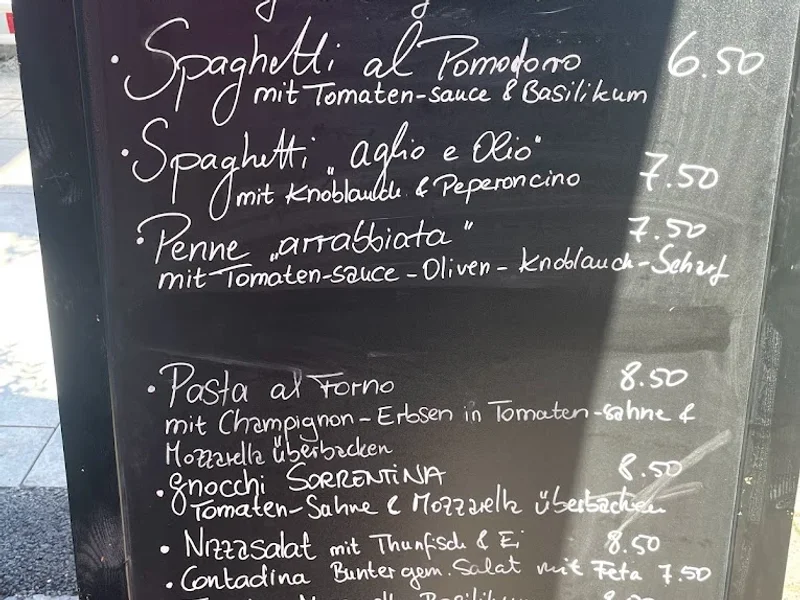 • Spaghetti al Pomodoro 6.50
mit Tomaten-sauce & Basilikum
• Spaghetti „aglio e Olio" 7.50
mit Knoblauch & Peperoncino
• Penne „arrabbiata" 7.50
mit Tomaten-sauce - Oliven - Knoblauch - Scharf
• Pasta al Forno 8.50
mit Champignon - Erbsen in Tomaten-sahne &
Mozzarella überbacken
• gnocchi SORRENTINA 8.50
Tomaten-Sahne & Mozzarella überbacken
• Nizzasalat mit Thunfisch & Ei 8.50
• Contadina Bunter gem. Salat mit Feta 7.50